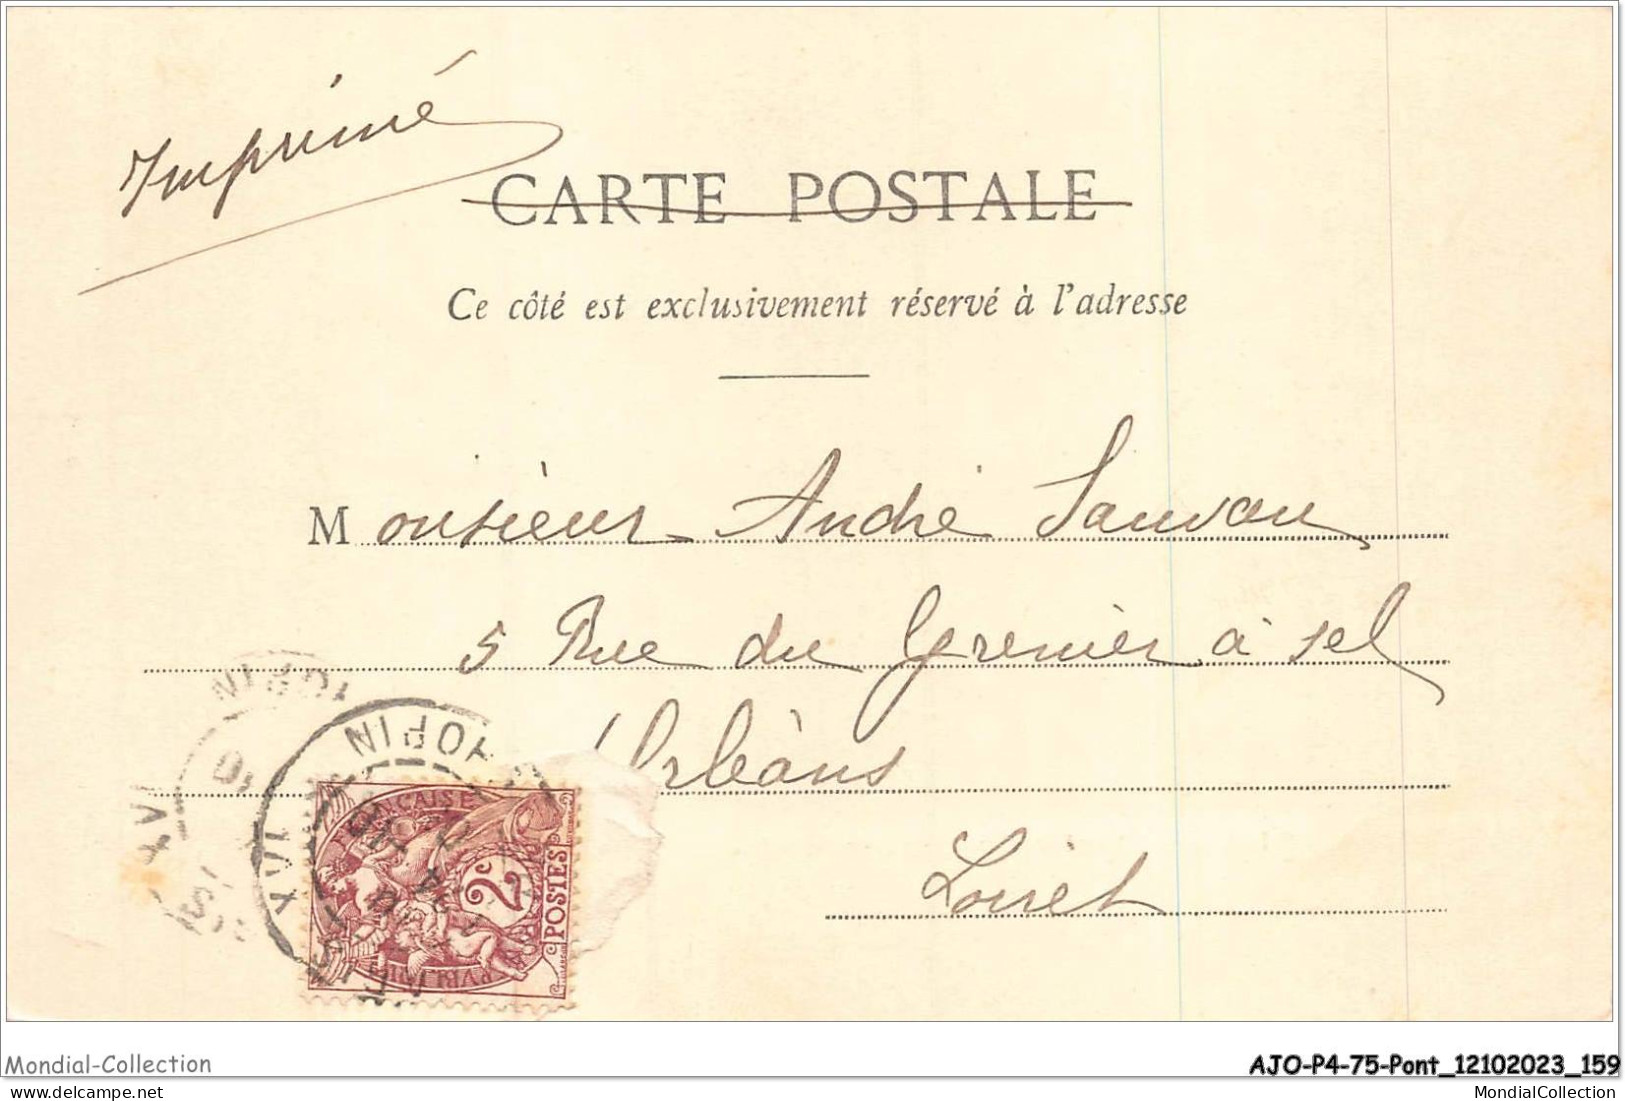 Imprimé
CARTE POSTALE
Ce côté est exclusivement réservé à l'adresse
Monsieur André Sauvan
5 Rue du Grenier à sel
Orléans
Loiret
CHOPIN
XVI
FRANÇAISE
2c
POSTES
Mondial-Collection
AJO-P4-75-Pont_12102023_159
www.delcampe.net
MondialCollection